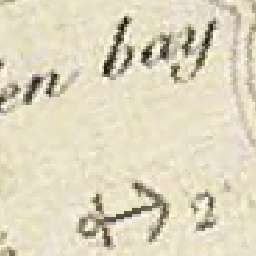 en bay
2